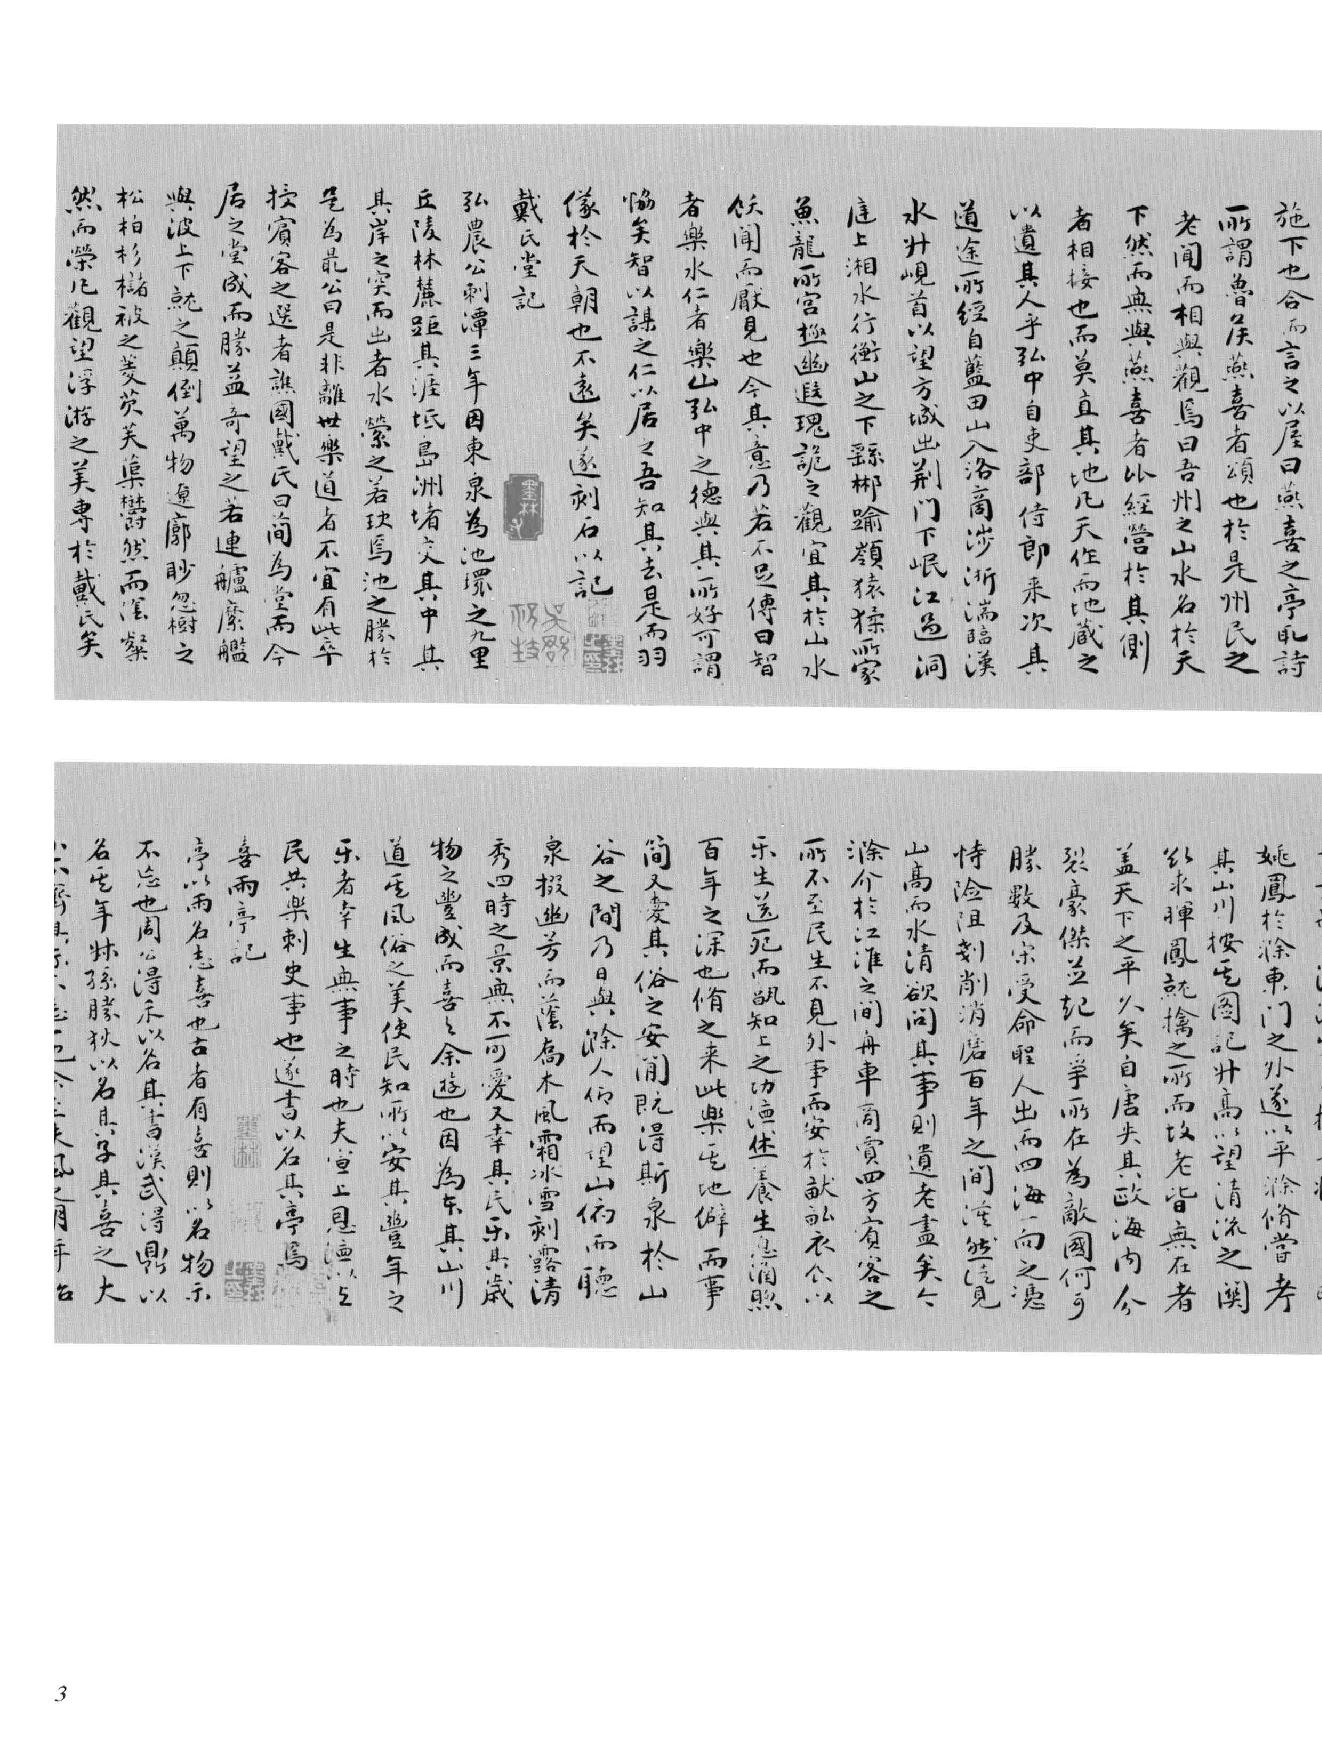 施下也合而言之以屋曰燕喜之亭取詩
所謂魯侯燕喜者頌也於是州民之
老聞而相與觀焉曰吾州之山水名於天
下然而無與燕喜者比經營於其側
者相接也而莫直其地凡天作而地藏之
以遺其人乎弘中自吏部侍郎来次其
道途所經自藍田山入洛商涉淅湍臨漢
水升峴首以望方城出荊门下岷江過洞
庭上湘水行衡山之下繇郴踰嶺猿狖所家
魚龍所宮極幽遐瑰詭之觀宜其於山水
飫聞而厭見也今其意乃若不足傳曰智
者樂水仁者樂山弘中之德與其所好可謂
恊矣智以謀之仁以居之吾知其去是而羽
儀於天朝也不遠矣遂刻石以記
戴氏堂記
弘農公刺潭三年因東泉為池環之九里
丘陵林麓距其涯坻島洲堵交其中其
其岸之突而出者水縈之若玦焉池之勝於
是為最公曰是非離世樂道者不宜有此卒
授賓客之選者譙國戴氏曰简為堂而今
居之堂成而勝益奇望之若連艫縻艦
與波上下就之顛倒萬物遼廓眇忽樹之
松柏杉櫧被之菱芡芙蕖欝然而隂粲
然而榮凡觀望浮游之美專於戴氏矣
墨林
姚鳳於滁東门之外遂以平滁脩嘗考
其山川按其图記升高以望清流之関
欲求暉鳳就擒之所而故老皆無在者
盖天下之平久矣自唐失其政海内分
裂豪傑並起而爭所在為敵國何可
勝數及宋受命聖人出而四海一向之憑
恃险阻剗削消磨百年之间漠然徒見
山高而水清欲问其事則遺老盡矣今
滁介於江淮之间舟車商賈四方賓客之
所不至民生不見外事而安於畎畝衣食以
乐生送死而孰知上之功德休養生息涵煦
百年之深也脩之来此樂其地僻而事
简又愛其俗之安閒既得斯泉於山
谷之間乃日與滁人仰而望山俯而聽
泉掇幽芳而蔭喬木風霜冰雪刻露清
秀四時之景無不可愛又幸其民乐其歲
物之豐成而喜与余遊也因為本其山川
道其風俗之美使民知所以安其豐年之
乐者幸生無事之時也夫宣上恩德以与
民共樂刺史事也遂書以名其亭焉
喜雨亭記
亭以雨名志喜也古者有喜則以名物示
不忘也周公得禾以名其書漢武得鼎以
名其年叔孫勝狄以名其子其喜之大
墨林
3